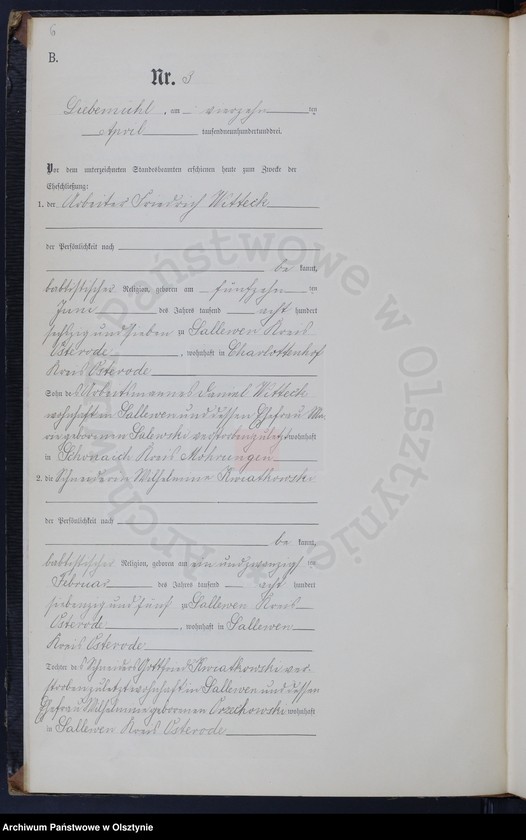 6
B.
Nr. 3
Liebemühl, am vierzehn ten
April tausendneunhundertunddrei.
Vor dem unterzeichneten Standesbeamten erschienen heute zum Zwecke der
Eheschließung:
1. der Arbeiter Friedrich Witteck
der Persönlichkeit nach
be kannt,
babtistischer Religion, geboren am fünfzehn ten
Juni des Jahres tausend acht hundert
sechszig und sieben zu Sallewen Kreis
Osterode, wohnhaft in Charlottenhof
Kreis Osterode
Sohn des Arbeitsmannes Daniel Witteck
wohnhaft in Sallewen und dessen Ehefrau Ma-
rie geborenen Salewski verstorben zuletzt wohnhaft
in Schönaich Kreis Mohrungen
2. die Schneiderin Wilhelmine Kwiatkowski
der Persönlichkeit nach
be kannt,
babtistischer Religion, geboren am ein und zwanzig ten
Februar des Jahres tausend acht hundert
siebenzig und fünf zu Sallewen Kreis
Osterode, wohnhaft in Sallewen
Kreis Osterode
Tochter des Gottfried Kwiatkowski ver-
storben zuletzt wohnhaft in Sallewen und dessen
Ehefrau Wilhelmine geborenen Orzechowski wohnhaft
in Sallewen Kreis Osterode
Archiwum Państwowe w Olsztynie
Archiwum Państwowe w Olsztynie